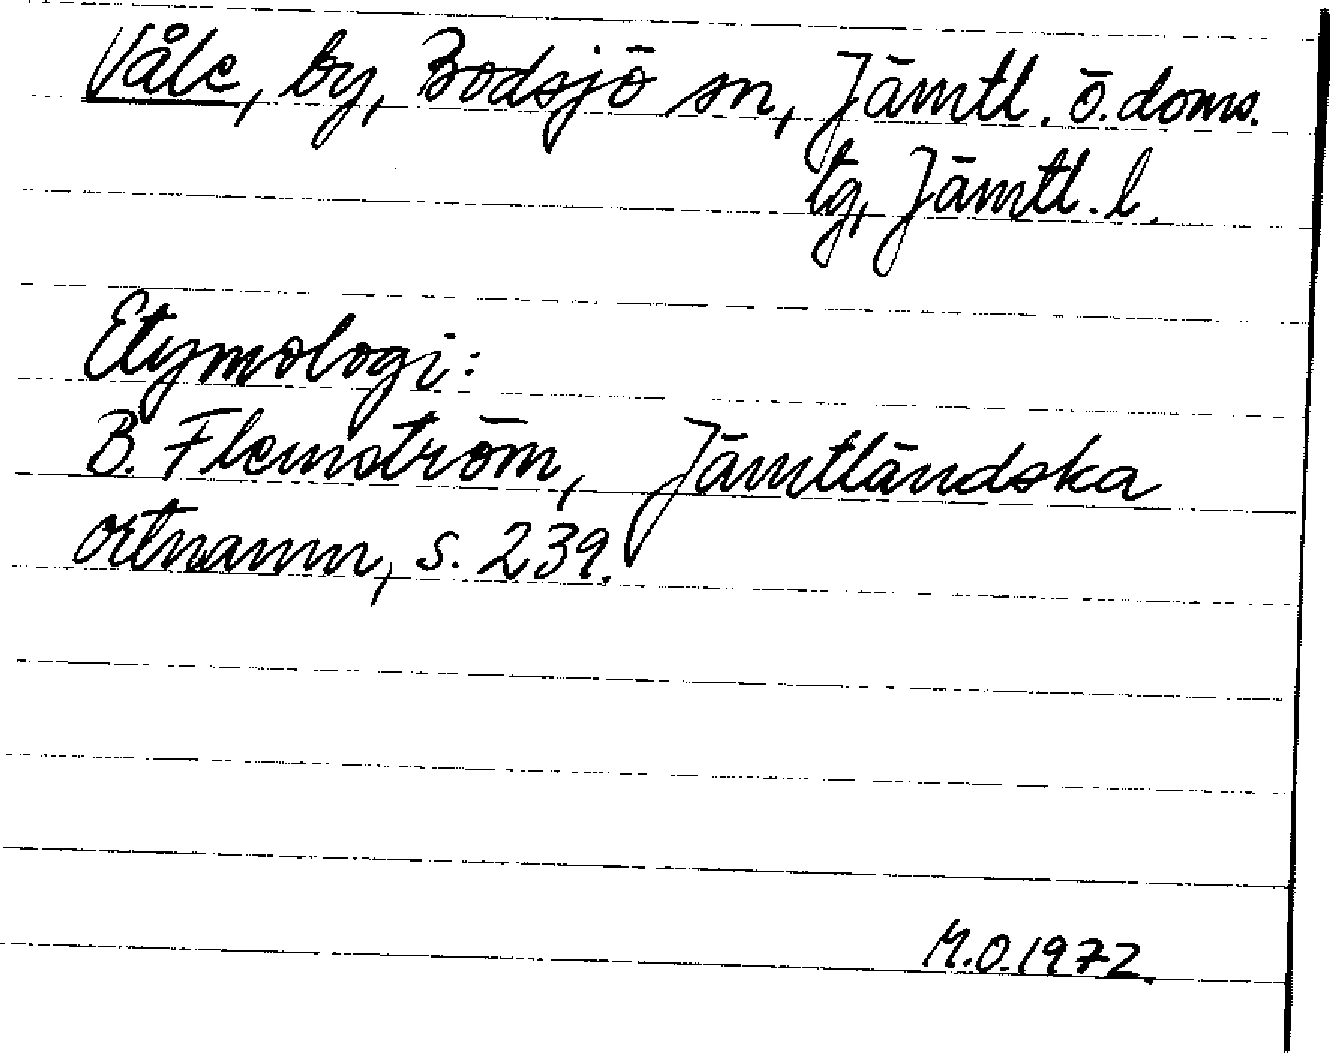 Våle, by, Bodsjö sn, Jämtl. ö. doms.
tg, Jämtl. l.
Etymologi:
B. Flemström, Jämtländska
ortnamn, s. 239.
M.O. 1972.